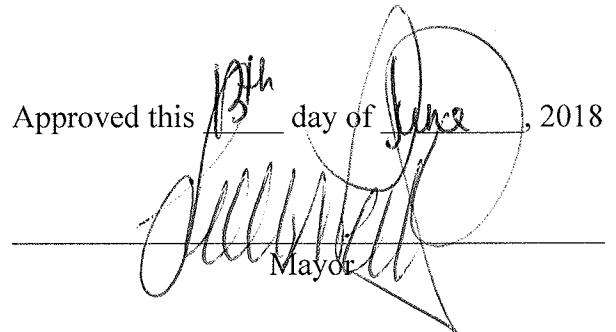 Approved this 13th day of June, 2018
Mayor